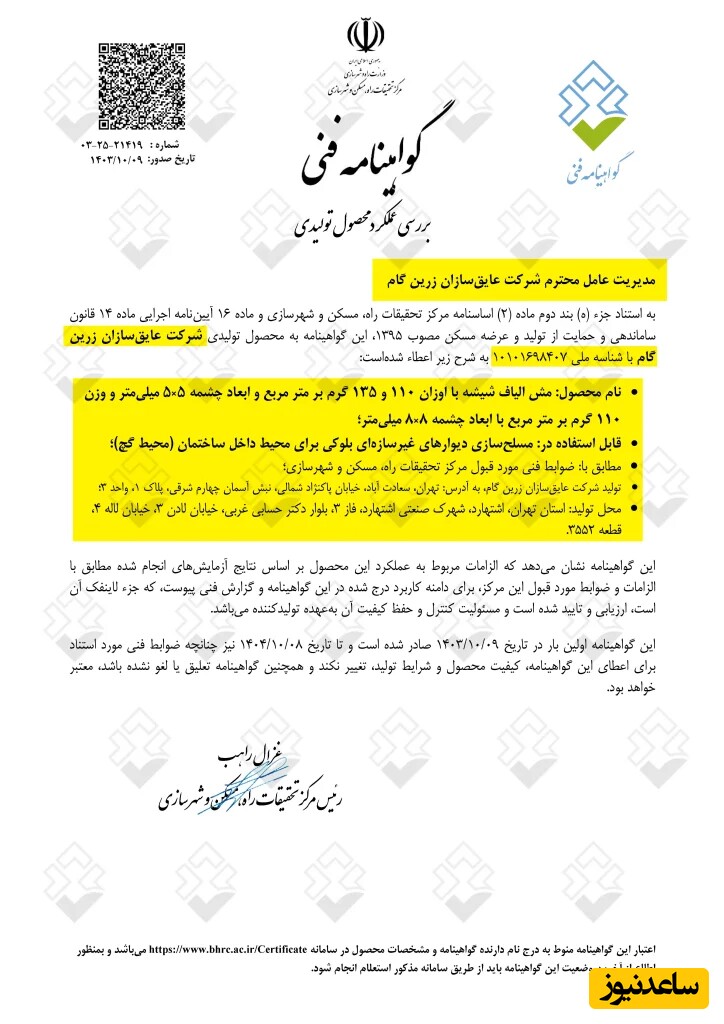 جمهوری اسلامی ایران
وزارت راه و شهرسازی
مرکز تحقیقات راه، مسکن و شهرسازی
گواهینامه فنی
شماره : ۲۱۴۱۹-۲۵-۰۳
تاریخ صدور: ۱۴۰۳/۱۰/۰۹
گواهینامه فنی
بررسی عملکرد محصول تولیدی
مدیریت عامل محترم شرکت عایق‌سازان زرین گام
به استناد جزء (ه) بند دوم ماده (۲) اساسنامه مرکز تحقیقات راه، مسکن و شهرسازی و ماده ۱۶ آیین‌نامه اجرایی ماده ۱۴ قانون
ساماندهی و حمایت از تولید و عرضه مسکن مصوب ۱۳۹۵، این گواهینامه به محصول تولیدی شرکت عایق‌سازان زرین
گام با شناسه ملی ۱۰۱۰۱۶۹۸۴۰۷ به شرح زیر اعطاء شده‌است:
• نام محصول: مش الیاف شیشه با اوزان ۱۱۰ و ۱۳۵ گرم بر متر مربع و ابعاد چشمه ۵×۵ میلی‌متر و وزن
۱۱۰ گرم بر متر مربع با ابعاد چشمه ۸×۸ میلی‌متر؛
• قابل استفاده در: مسلح‌سازی دیوارهای غیرسازه‌ای بلوکی برای محیط داخل ساختمان (محیط گچ)؛
• مطابق با: ضوابط فنی مورد قبول مرکز تحقیقات راه، مسکن و شهرسازی؛
• تولید شرکت عایق‌سازان زرین گام، به آدرس: تهران، سعادت آباد، خیابان پاکنژاد شمالی، نبش آسمان چهارم شرقی، پلاک ۱، واحد ۳؛
• محل تولید: استان تهران، اشتهارد، شهرک صنعتی اشتهارد، فاز ۳، بلوار دکتر حسابی غربی، خیابان لادن ۳، خیابان لاله ۴،
قطعه ۳۵۵۲.
این گواهینامه نشان می‌دهد که الزامات مربوط به عملکرد این محصول بر اساس نتایج آزمایش‌های انجام شده مطابق با
الزامات و ضوابط مورد قبول این مرکز، برای دامنه کاربرد درج شده در این گواهینامه و گزارش فنی پیوست، که جزء لاینفک آن
است، ارزیابی و تایید شده است و مسئولیت کنترل و حفظ کیفیت آن به‌عهده تولیدکننده می‌باشد.
این گواهینامه اولین بار در تاریخ ۱۴۰۳/۱۰/۰۹ صادر شده است و تا تاریخ ۱۴۰۴/۱۰/۰۸ نیز چنانچه ضوابط فنی مورد استناد
برای اعطای این گواهینامه، کیفیت محصول و شرایط تولید، تغییر نکند و همچنین گواهینامه تعلیق یا لغو نشده باشد، معتبر
خواهد بود.
غزال راهب
رئیس مرکز تحقیقات راه، مسکن و شهرسازی
اعتبار این گواهینامه منوط به درج نام دارنده گواهینامه و مشخصات محصول در سامانه https://www.bhrc.ac.ir/Certificate می‌باشد و بمنظور
اطلاع از آخرین وضعیت این گواهینامه باید از طریق سامانه مذکور استعلام انجام شود.
ساعدنیوز